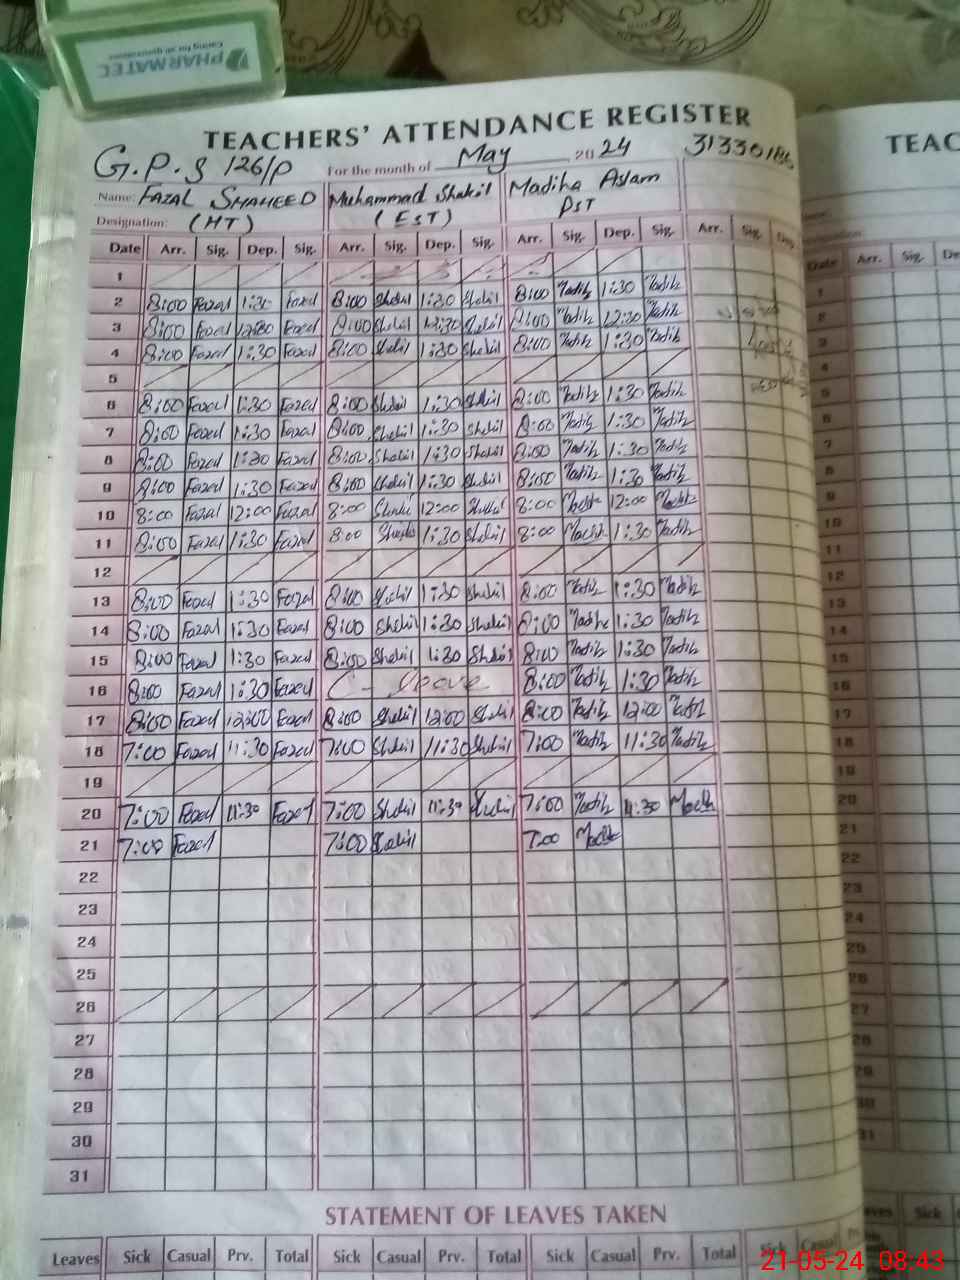 PHARMATEC
Caring for all generations
TEACHERS' ATTENDANCE REGISTER
TEAC
G.P.S 126/P For the month of May 2024
Name: FAZAL SHAHEED Muhammad Shakil Madiha Aslam
Designation: (HT) (EST) PST
Date Arr. Sig. Dep. Sig. Arr. Sig. Dep. Sig. Arr. Sig. Dep. Sig. Arr. Sig. Dep. Date Arr. Sig. De
1
2 8:00 Fazal 1:30 Fazal 8:00 Shakil 1:30 Shakil 8:00 Madiha 1:30 Madiha
3 8:00 Fazal 12:30 Fazal 8:00 Shakil 12:30 Shakil 8:00 Madiha 12:30 Madiha
4 8:00 Fazal 1:30 Fazal 8:00 Shakil 1:30 Shakil 8:00 Madiha 1:30 Madiha
5
6 8:00 Fazal 1:30 Fazal 8:00 Shakil 1:30 Shakil 8:00 Madiha 1:30 Madiha
7 8:00 Fazal 1:30 Fazal 8:00 Shakil 1:30 Shakil 8:00 Madiha 1:30 Madiha
8 8:00 Fazal 1:30 Fazal 8:00 Shakil 1:30 Shakil 8:00 Madiha 1:30 Madiha
9 8:00 Fazal 1:30 Fazal 8:00 Shakil 1:30 Shakil 8:00 Madiha 1:30 Madiha
10 8:00 Fazal 12:00 Fazal 8:00 Shakil 12:00 Shakil 8:00 Madiha 12:00 Madiha
11 8:00 Fazal 1:30 Fazal 8:00 Shakil 1:30 Shakil 8:00 Madiha 1:30 Madiha
12
13 8:00 Fazal 1:30 Fazal 8:00 Shakil 1:30 Shakil 8:00 Madiha 1:30 Madiha
14 8:00 Fazal 1:30 Fazal 8:00 Shakil 1:30 Shakil 8:00 Madiha 1:30 Madiha
15 8:00 Fazal 1:30 Fazal 8:00 Shakil 1:30 Shakil 8:00 Madiha 1:30 Madiha
16 8:00 Fazal 1:30 Fazal C - leave 8:00 Madiha 1:30 Madiha
17 8:00 Fazal 12:00 Fazal 8:00 Shakil 12:00 Shakil 8:00 Madiha 12:00 Madiha
18 7:00 Fazal 11:30 Fazal 7:00 Shakil 11:30 Shakil 7:00 Madiha 11:30 Madiha
19
20 7:00 Fazal 11:30 Fazal 7:00 Shakil 11:30 Shakil 7:00 Madiha 11:30 Madiha
21 7:00 Fazal 7:00 Shakil 7:00 Madiha
22
23
24
25
26
27
28
29
30
31
STATEMENT OF LEAVES TAKEN
Leaves Sick Casual Prv. Total Sick Casual Prv. Total Sick Casual Prv. Total Sick Casual
21-05-24 08:43